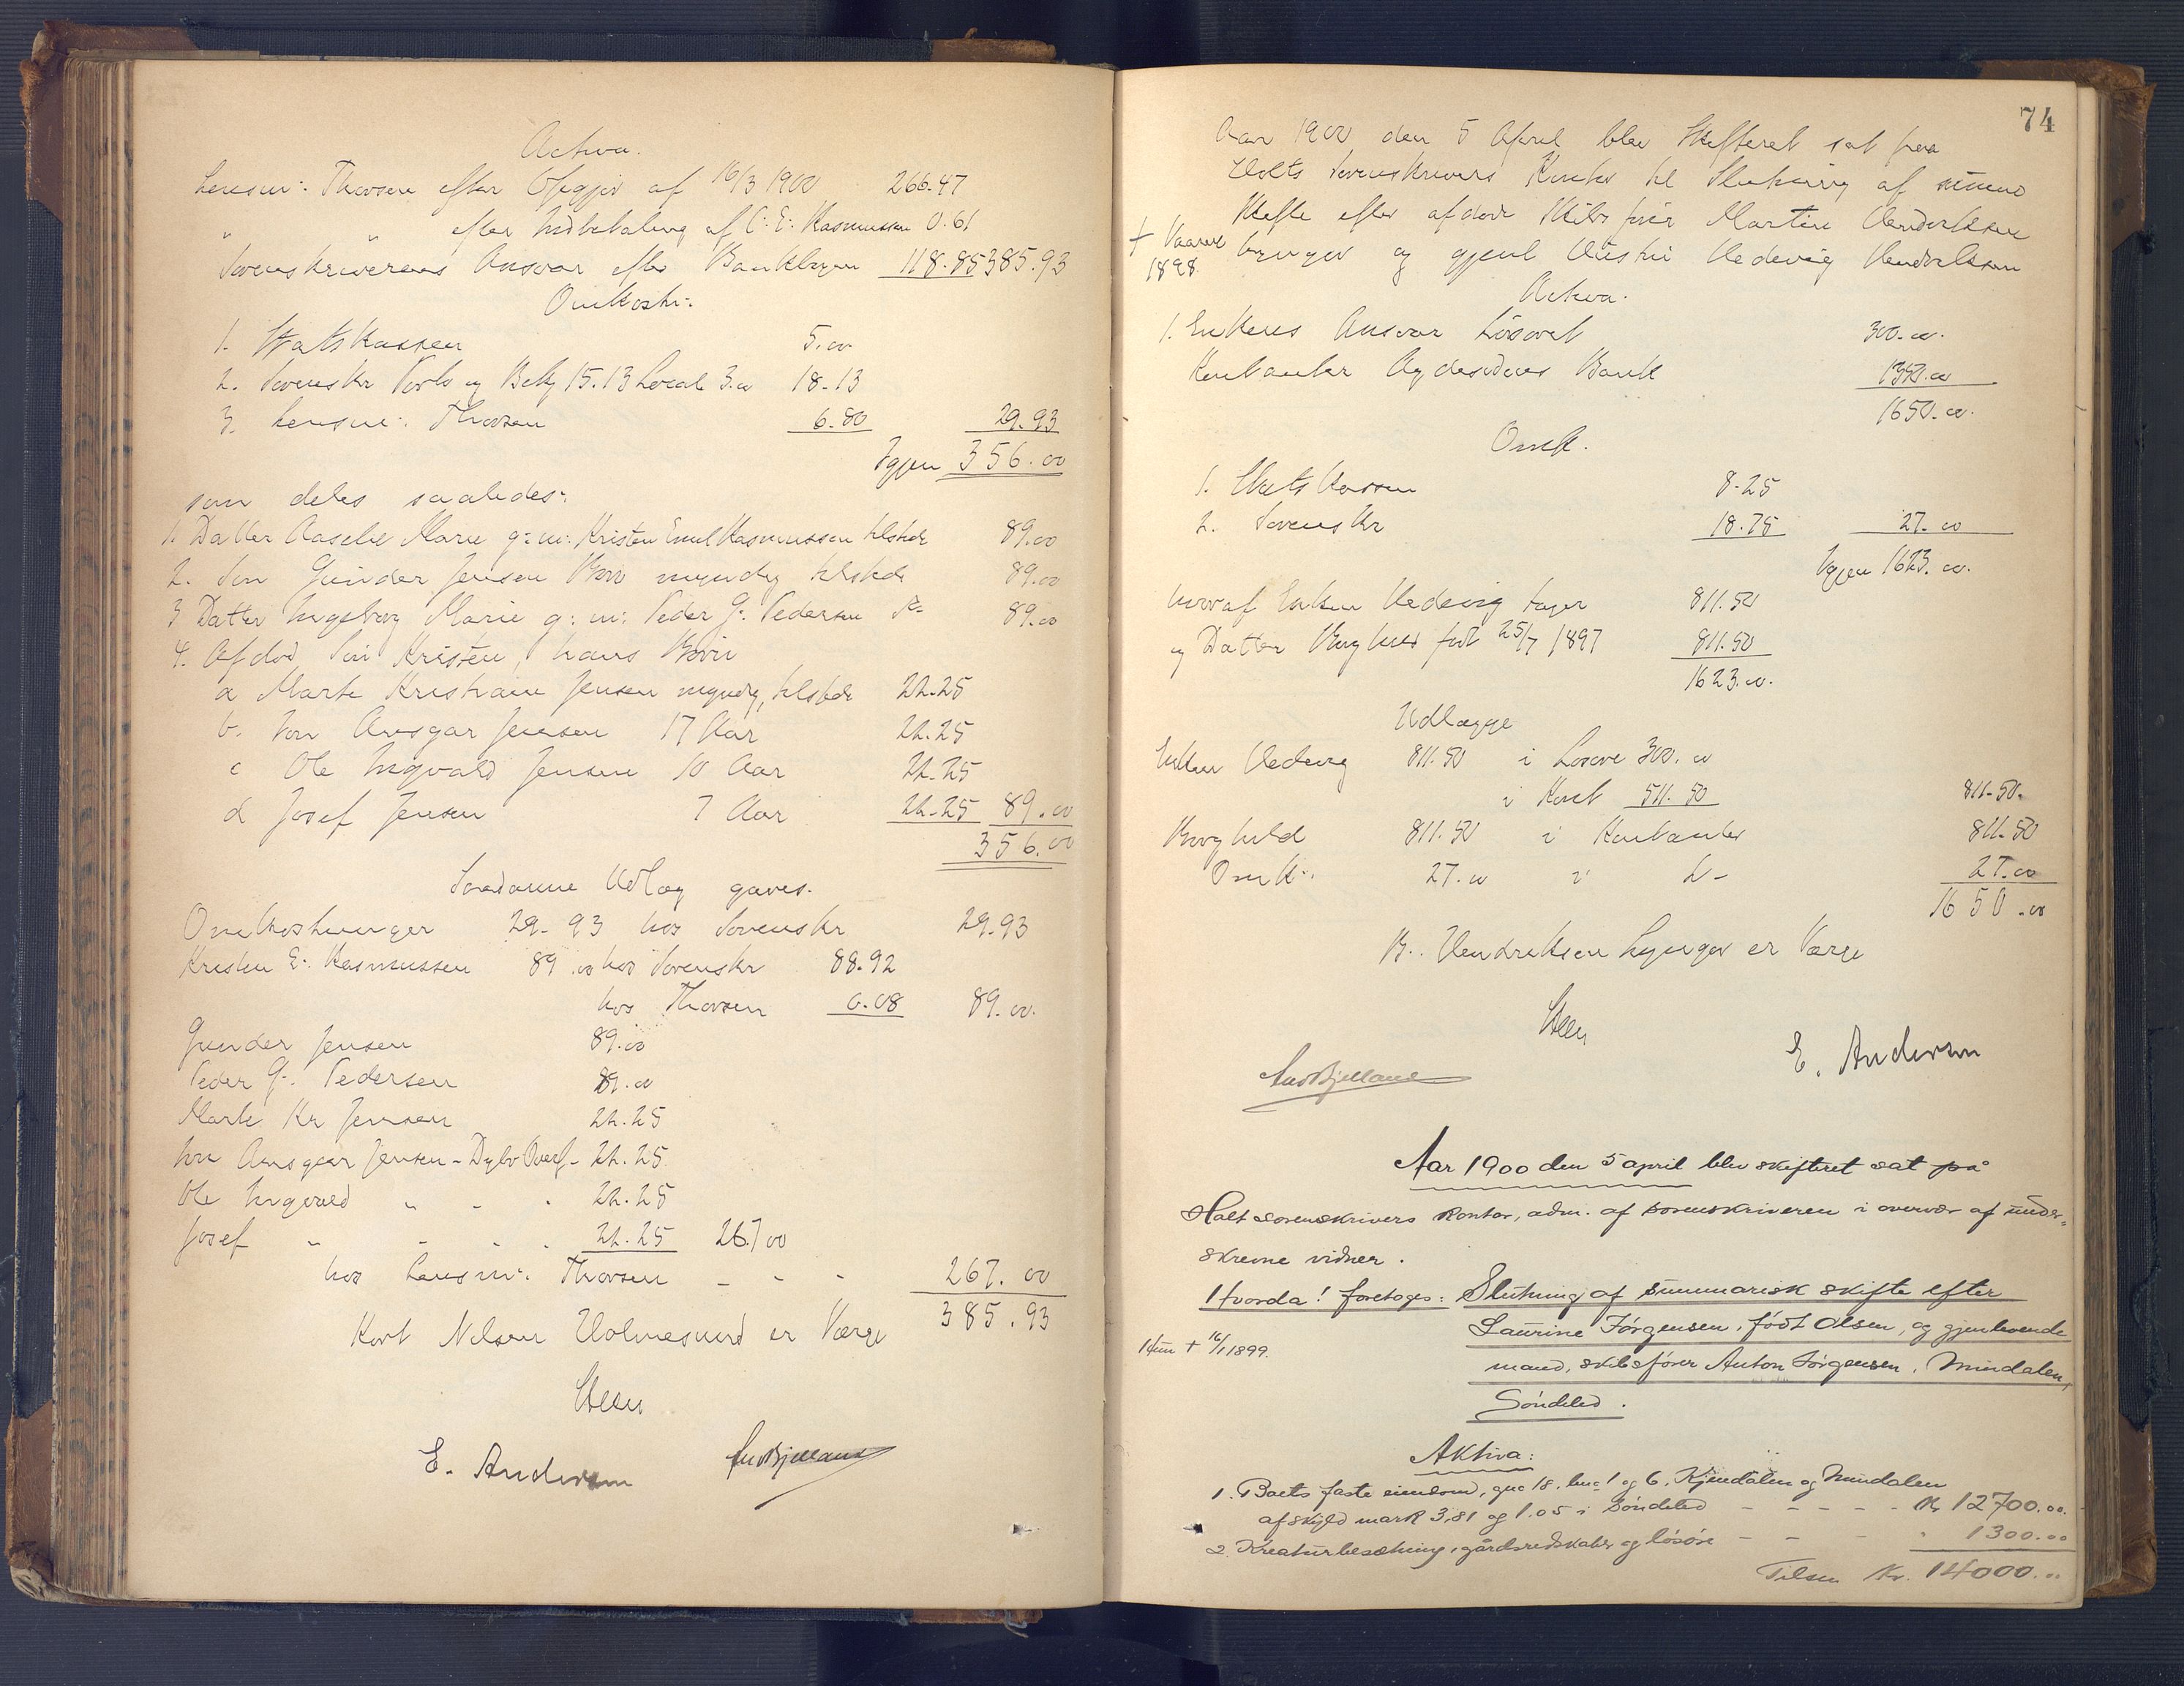 Activa.
Lensm: Thorsen efter Opgjør af 16/3 1900 266.47
" " efter Indbetaling af C. E. Rasmussen 0.61
Sorenskriverens Ansvar efter Bankbogen 118.85 385.93
Omkostn:
1. Statskassen 5.00
2. Sorenskr Porto og Bekj 15.13 Local 3.00 18.13
3. Lensm: Thorsen 6.80 29.93
Igjen 356.00
som deles saaledes:
1. Datter Aasele Marie g: m: Kristen Emil Rasmussen tilstede 89.00
2. Søn Gunder Jensen myndig tilstede 89.00
3 Datter Ingeborg Marie g: m: Peder G. Pedersen 89.00
4. Afdød Søn Kristen, hans Børn
a Marte Kristiane Jensen myndig, tilstede 22.25
b. Jon Ansgar Jensen 17 Aar 22.25
c Ole Ingvald Jensen 10 Aar 22.25
d Josef Jensen 7 Aar 22.25 89.00
356.00
Saadanne Udlæg gaves.
Omkostninger 29.93 hos Sorenskr 29.93
Kristen E. Rasmussen 89.00 hos Sorenskr 88.92
hos Thorsen 0.08 89.00.
Gunder Jensen 89.00
Peder G. Pedersen 89.00
Marte Kr Jensen 22.25
Jon Ansgar Jensen - 22.25
Ole Ingvald " - - 22.25
Josef " - - - 22.25 267.00
hos Lensm: Thorsen - - - 267.00
385.93
Kort Nilsen Holmesund er Værge
Steen
E. Andersen AndBjelland
74
Aar 1900 den 5 April blev Skifteret sat paa
Holts Sorenskrivers Kontor til Slutning af summa
Skifte efter afdøde Skibsfører Martin Hendriksen
+ Vaaren 1898. Lyngør og gjenl Hustru Hedevig Hendriksen
Activa.
1. Enkens Ansvar Løsøret 300.00.
Kontanter Agdesidens Bank 1350.00
1650.00.
Omk.
1. Statskassen 8.25
2. Sorenskr 18.75 27.00
Igjen 1623.00.
hvoraf Enken Hedevig tager 811.50
og Datter Borghild født 25/7 1897 811.50
1623.00.
Udlægge
Enken Hedevig 811.50 i Løsøre 300.00
i Kont 511.50 811.50.
Borghild 811.50 i Kontanter 811.50
Omk: 27.00 i D- 27.00
1650.00
B. Hendriksen Lyngør er Værge
Steen
AndBjelland E. Andersen
Aar 1900 den 5 april blev skifteret sat på
Holt sorenskrivers kontor, adm. af sorenskriveren i overvær af under=
skrevne vidner.
Hvorda! foretoges: Slutning af summarisk skifte efter
Laurine Jørgensen, født Olsen, og gjenlevende
Hun + 16/1 1899. mand, skibsfører Anton Jørgensen, Mindalen,
Søndeled.
Aktiva:
1. Boets faste eiendom, gno 18. bno 1 og 6, Kjendalen og Mindalen
af skyld mark 3,81 og 1.05 i Søndeled - - - - - Kr 12700.00.
2. Kreaturbesætning, gårdsredskaber og løsøre - - - " 1300.00
Tilsam Kr. 14000.00